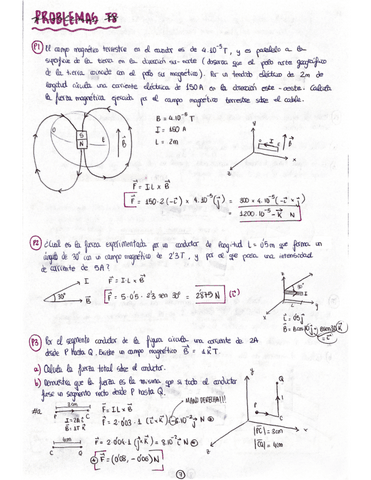 PROBLEMAS T8
P1) El campo magnético terrestre en el ecuador es de 4·10⁻⁵ T, y es paralelo a la
superficie de la tierra en la dirección sur-norte (observa que el polo norte geográfico
de la tierra coincide con el polo sur magnético). Por un tendido eléctrico de 2m de
longitud circula una corriente eléctrica de 150A en la dirección este-oeste. Calcula
la fuerza magnética ejercida por el campo magnético terrestre sobre el cable.
B = 4·10⁻⁵ T
I = 150 A
L = 2m
S
N
B⃗
F⃗ = I L x B⃗
P2) ¿Cuál es la fuerza experimentada por un conductor de longitud L = 0'5m que forma un
ángulo de 30° con un campo magnético de 2'3T, y por el que pasa una intensidad
de corriente de 5A?
I
30°
B⃗
F⃗ = I L x B⃗
F⃗ = 5·0'5·2'3 sen 30° = 2'875 N
P3) Por el segmento conductor de la figura circula una corriente de 2A
desde P hasta Q. Existe un campo magnético B⃗ = 1 k⃗ T.
a) Calcula la fuerza total sobre el conductor.
b) Demuestra que la fuerza es la misma que si todo el conductor
fuese un segmento recto desde P hasta Q.
3cm
P C
I = 2A
B = 1T
4cm
C Q
F⃗ = I L x B⃗
F⃗ = (0'08, -0'06) N
P
C
Q
|PC| = 3cm
|CQ| = 4cm